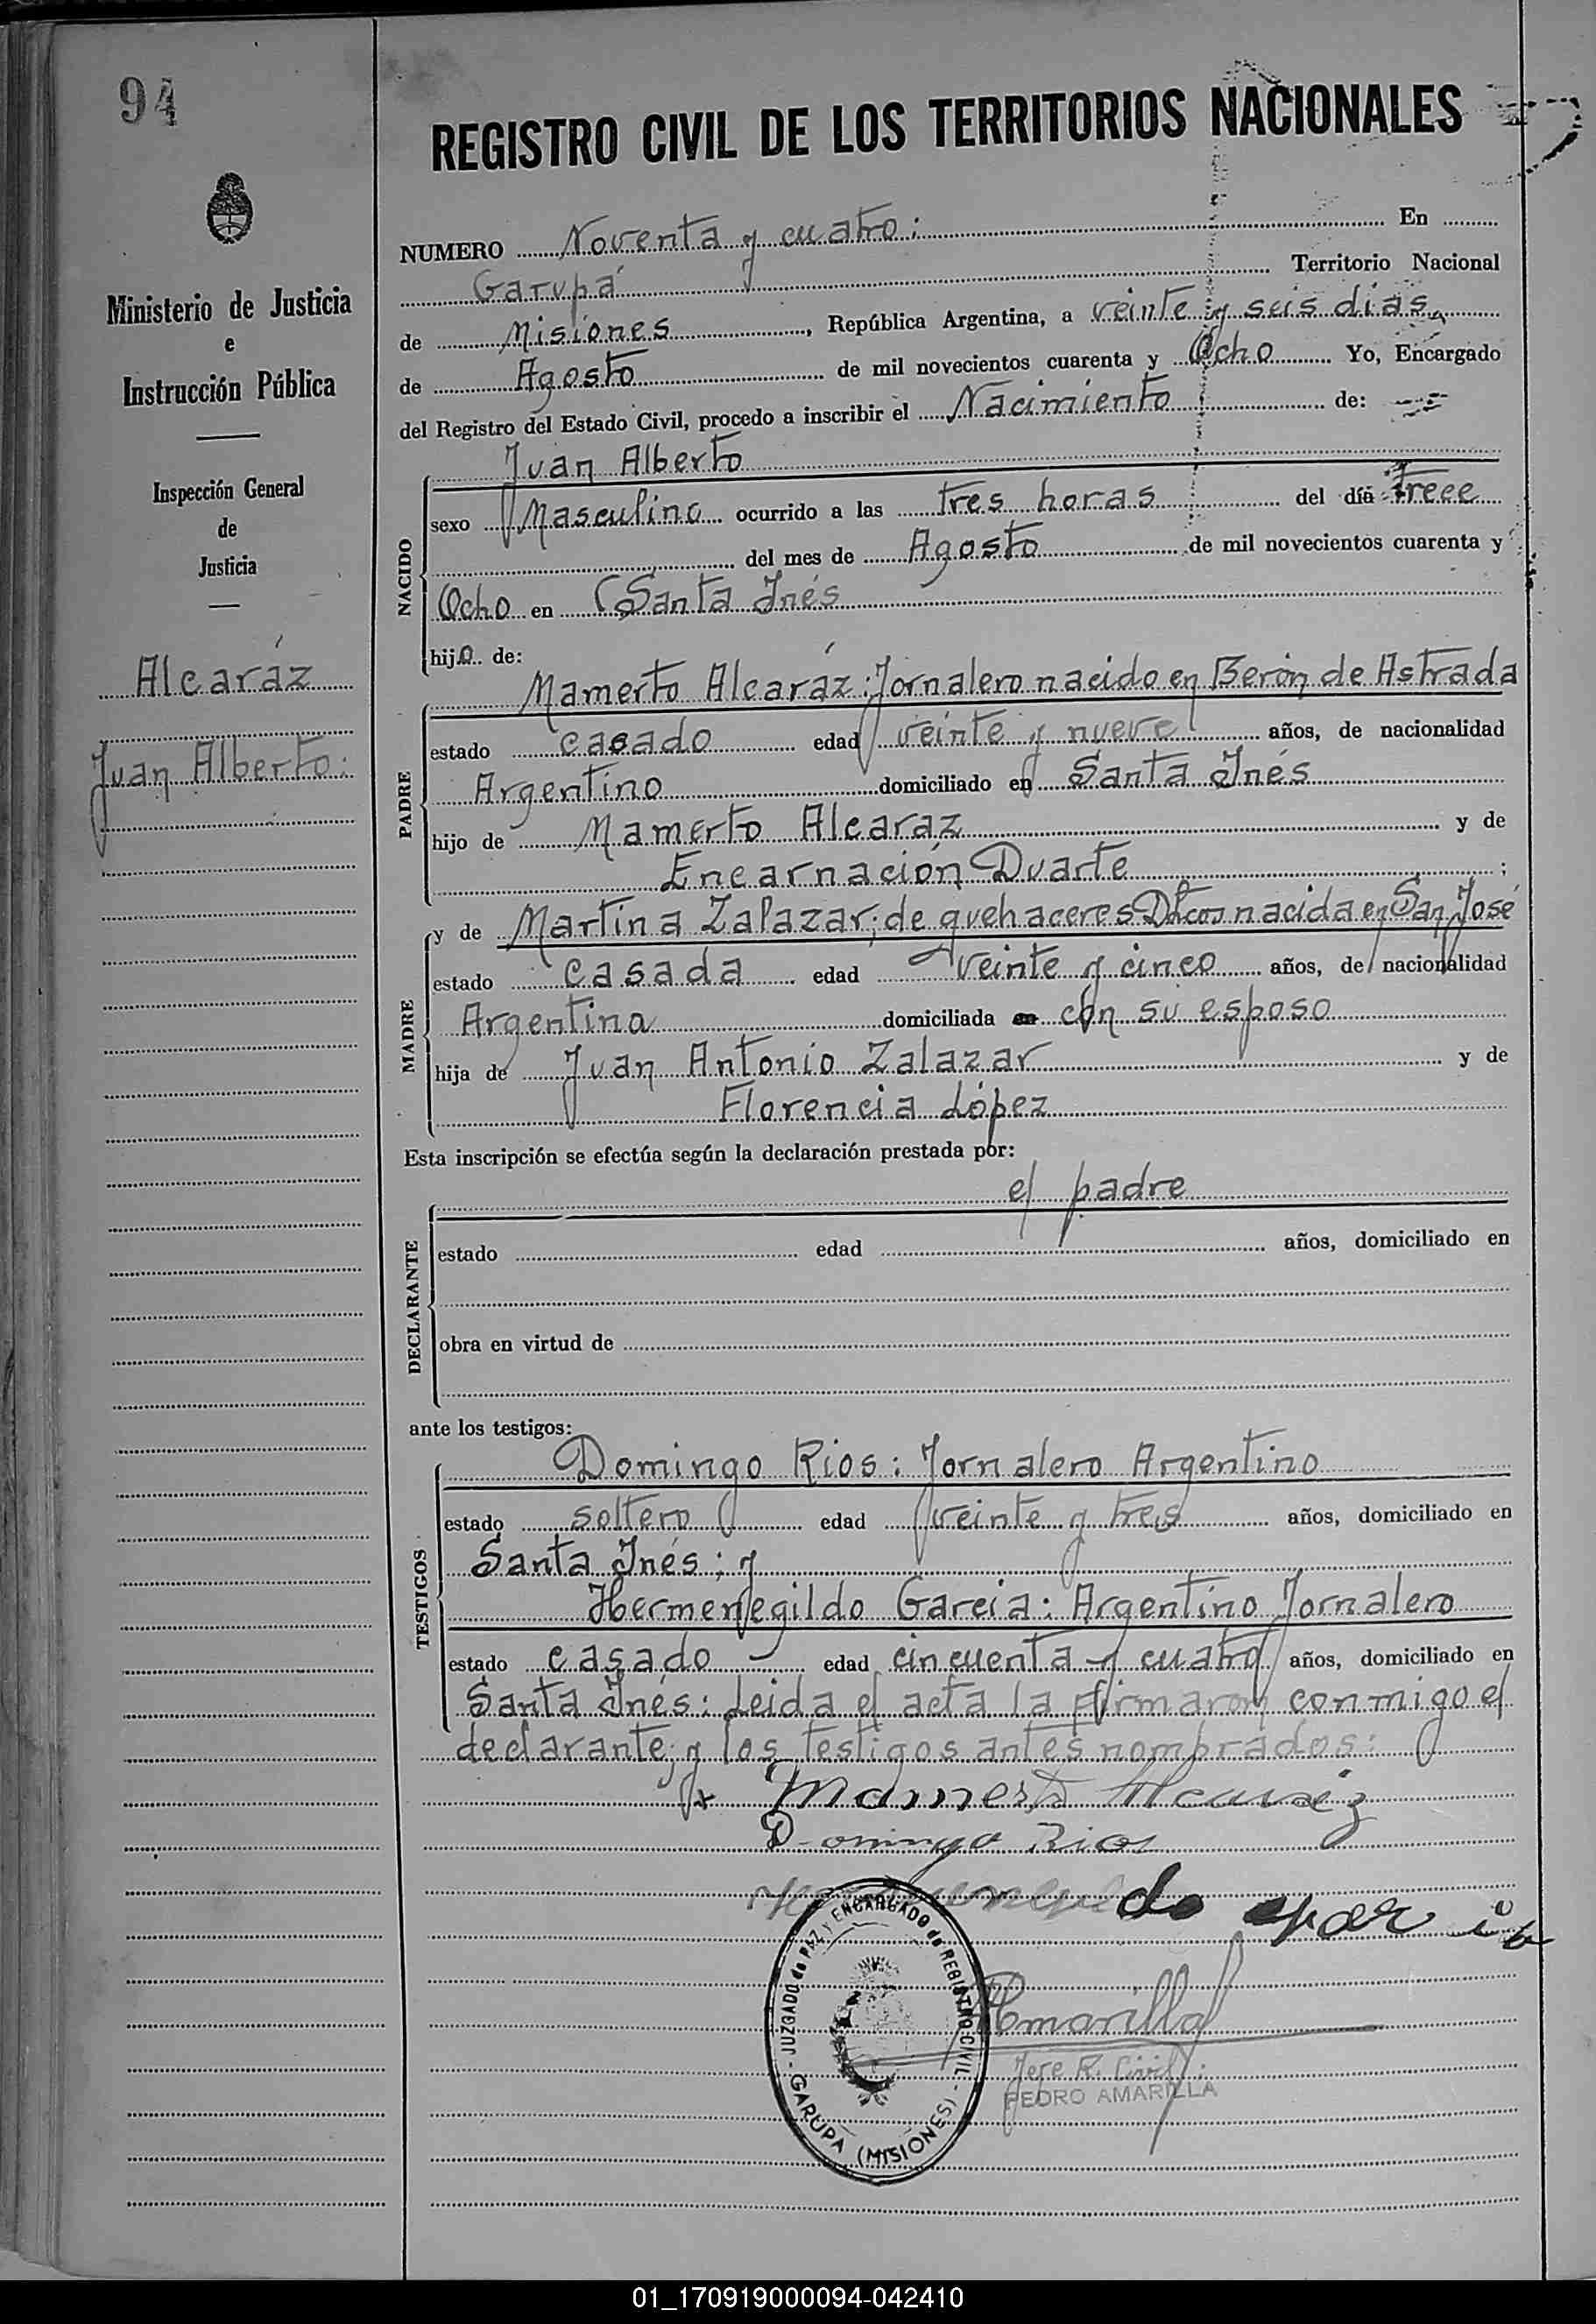 94
REGISTRO CIVIL DE LOS TERRITORIOS NACIONALES
Ministerio de Justicia
e
Instrucción Pública
Inspección General
de
Justicia
Alcaráz
Juan Alberto:
NUMERO Noventa y cuatro: En
Garupá Territorio Nacional
de Misiones, República Argentina, a veinte y seis dias
de Agosto de mil novecientos cuarenta y Ocho Yo, Encargado
del Registro del Estado Civil, procedo a inscribir el Nacimiento de:
NACIDO
Juan Alberto
sexo Masculino ocurrido a las tres horas del día trece
del mes de Agosto de mil novecientos cuarenta y
Ocho en Santa Inés
hijo de:
PADRE
Mamerto Alcaráz: Jornalero nacido en Berón de Astrada
estado casado edad veinte y nueve años, de nacionalidad
Argentino domiciliado en Santa Inés
hijo de Mamerto Alcaraz y de
Encarnación Duarte ;
MADRE
y de Martina Zalazar; de quehaceres Dtcos nacida en San José
estado casada edad veinte y cinco años, de nacionalidad
Argentina domiciliada en con su esposo
hija de Juan Antonio Zalazar y de
Florencia López
Esta inscripción se efectúa según la declaración prestada por:
DECLARANTE
el padre
estado edad años, domiciliado en
obra en virtud de
ante los testigos:
TESTIGOS
Domingo Rios: Jornalero Argentino
estado soltero edad veinte y tres años, domiciliado en
Santa Inés; y
Hermenegildo Garcia: Argentino Jornalero
estado casado edad cincuenta y cuatro años, domiciliado en
Santa Inés: Leida el acta la firmaron conmigo el
declarante; y los testigos antes nombrados:
Mamerto Alcaraz
Domingo Rios
JUZGADO de PAZ Y ENCARGADO de REGISTRO CIVIL - GARUPA (MISIONES) -
Amarilla
Jefe R. Civil:
PEDRO AMARILLA
01_170919000094-042410